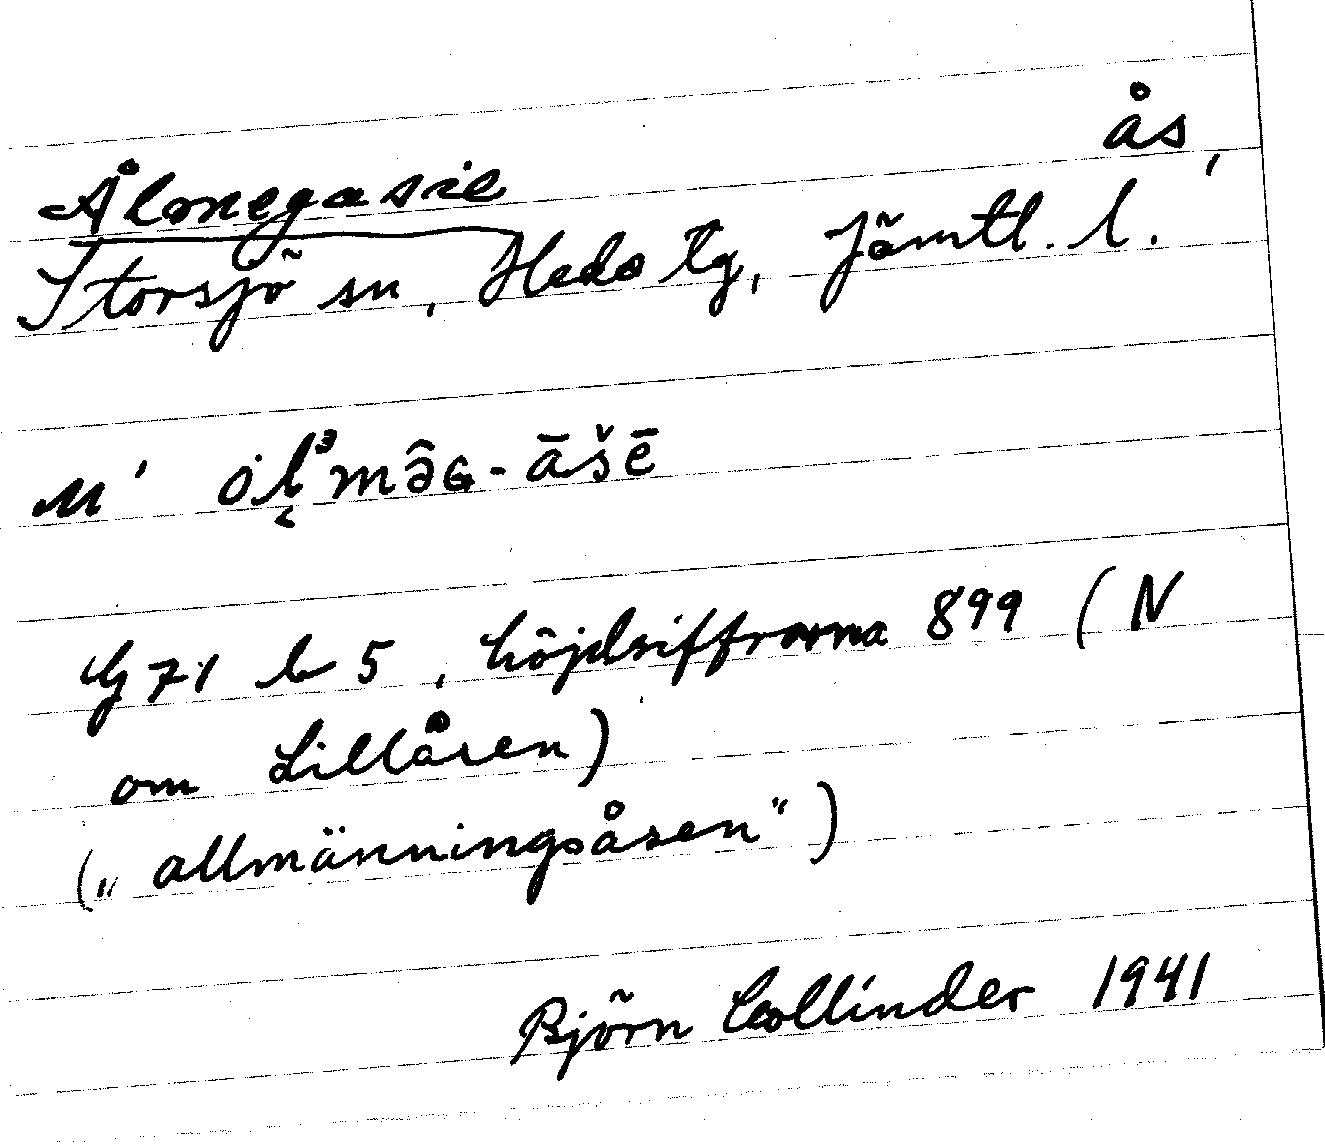 ås,
Ålmegasie
Storsjö sn, Heds tg, Jämtl. l.
m' ȯl̜ɜmə̂ɢ-āšē
G 71 b 5, höjdsiffrorna 899 (N
om Lillåsen)
(„allmänningsåsen")
Björn Collinder 1941